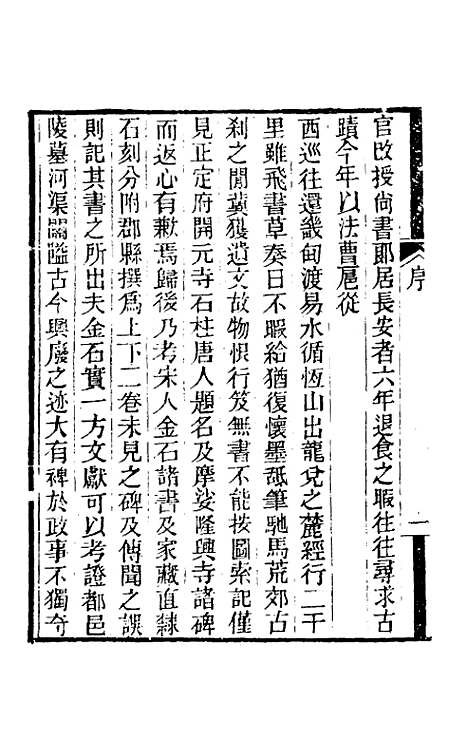 官改授尙書郎居長安者六年退食之暇往往尋求古
蹟今年以法曹扈從
西巡往還畿甸渡易水循恆山出龍兌之麓經行二千
里雖飛書草奏日不暇給猶復懷墨舐筆馳馬荒郊古
刹之閒冀獲遺文故物惧行笈無書不能按圖索記僅
見正定府開元寺石柱唐人題名及摩娑隆興寺諸碑
而返心有歉焉歸後乃考宋人金石諸書及家藏直隸
石刻分附郡縣撰爲上下二卷未見之碑及傳聞之誤
則記其書之所出夫金石實一方文獻可以考證都邑
陵墓河渠關隘古今興廢之迹大有裨於政事不獨奇
序
一